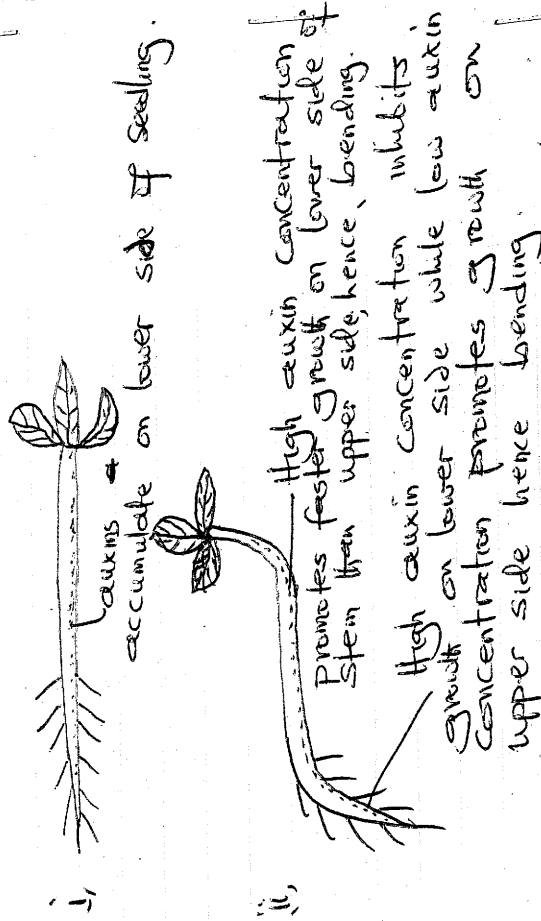 i,
auxins
accumulate on lower side of seedling.
ii,
High auxin concentration
promotes faster growth on lower side of
stem than upper side, hence, bending.
High auxin concentration inhibits
growth on lower side while low auxin
concentration promotes growth on
upper side hence bending.